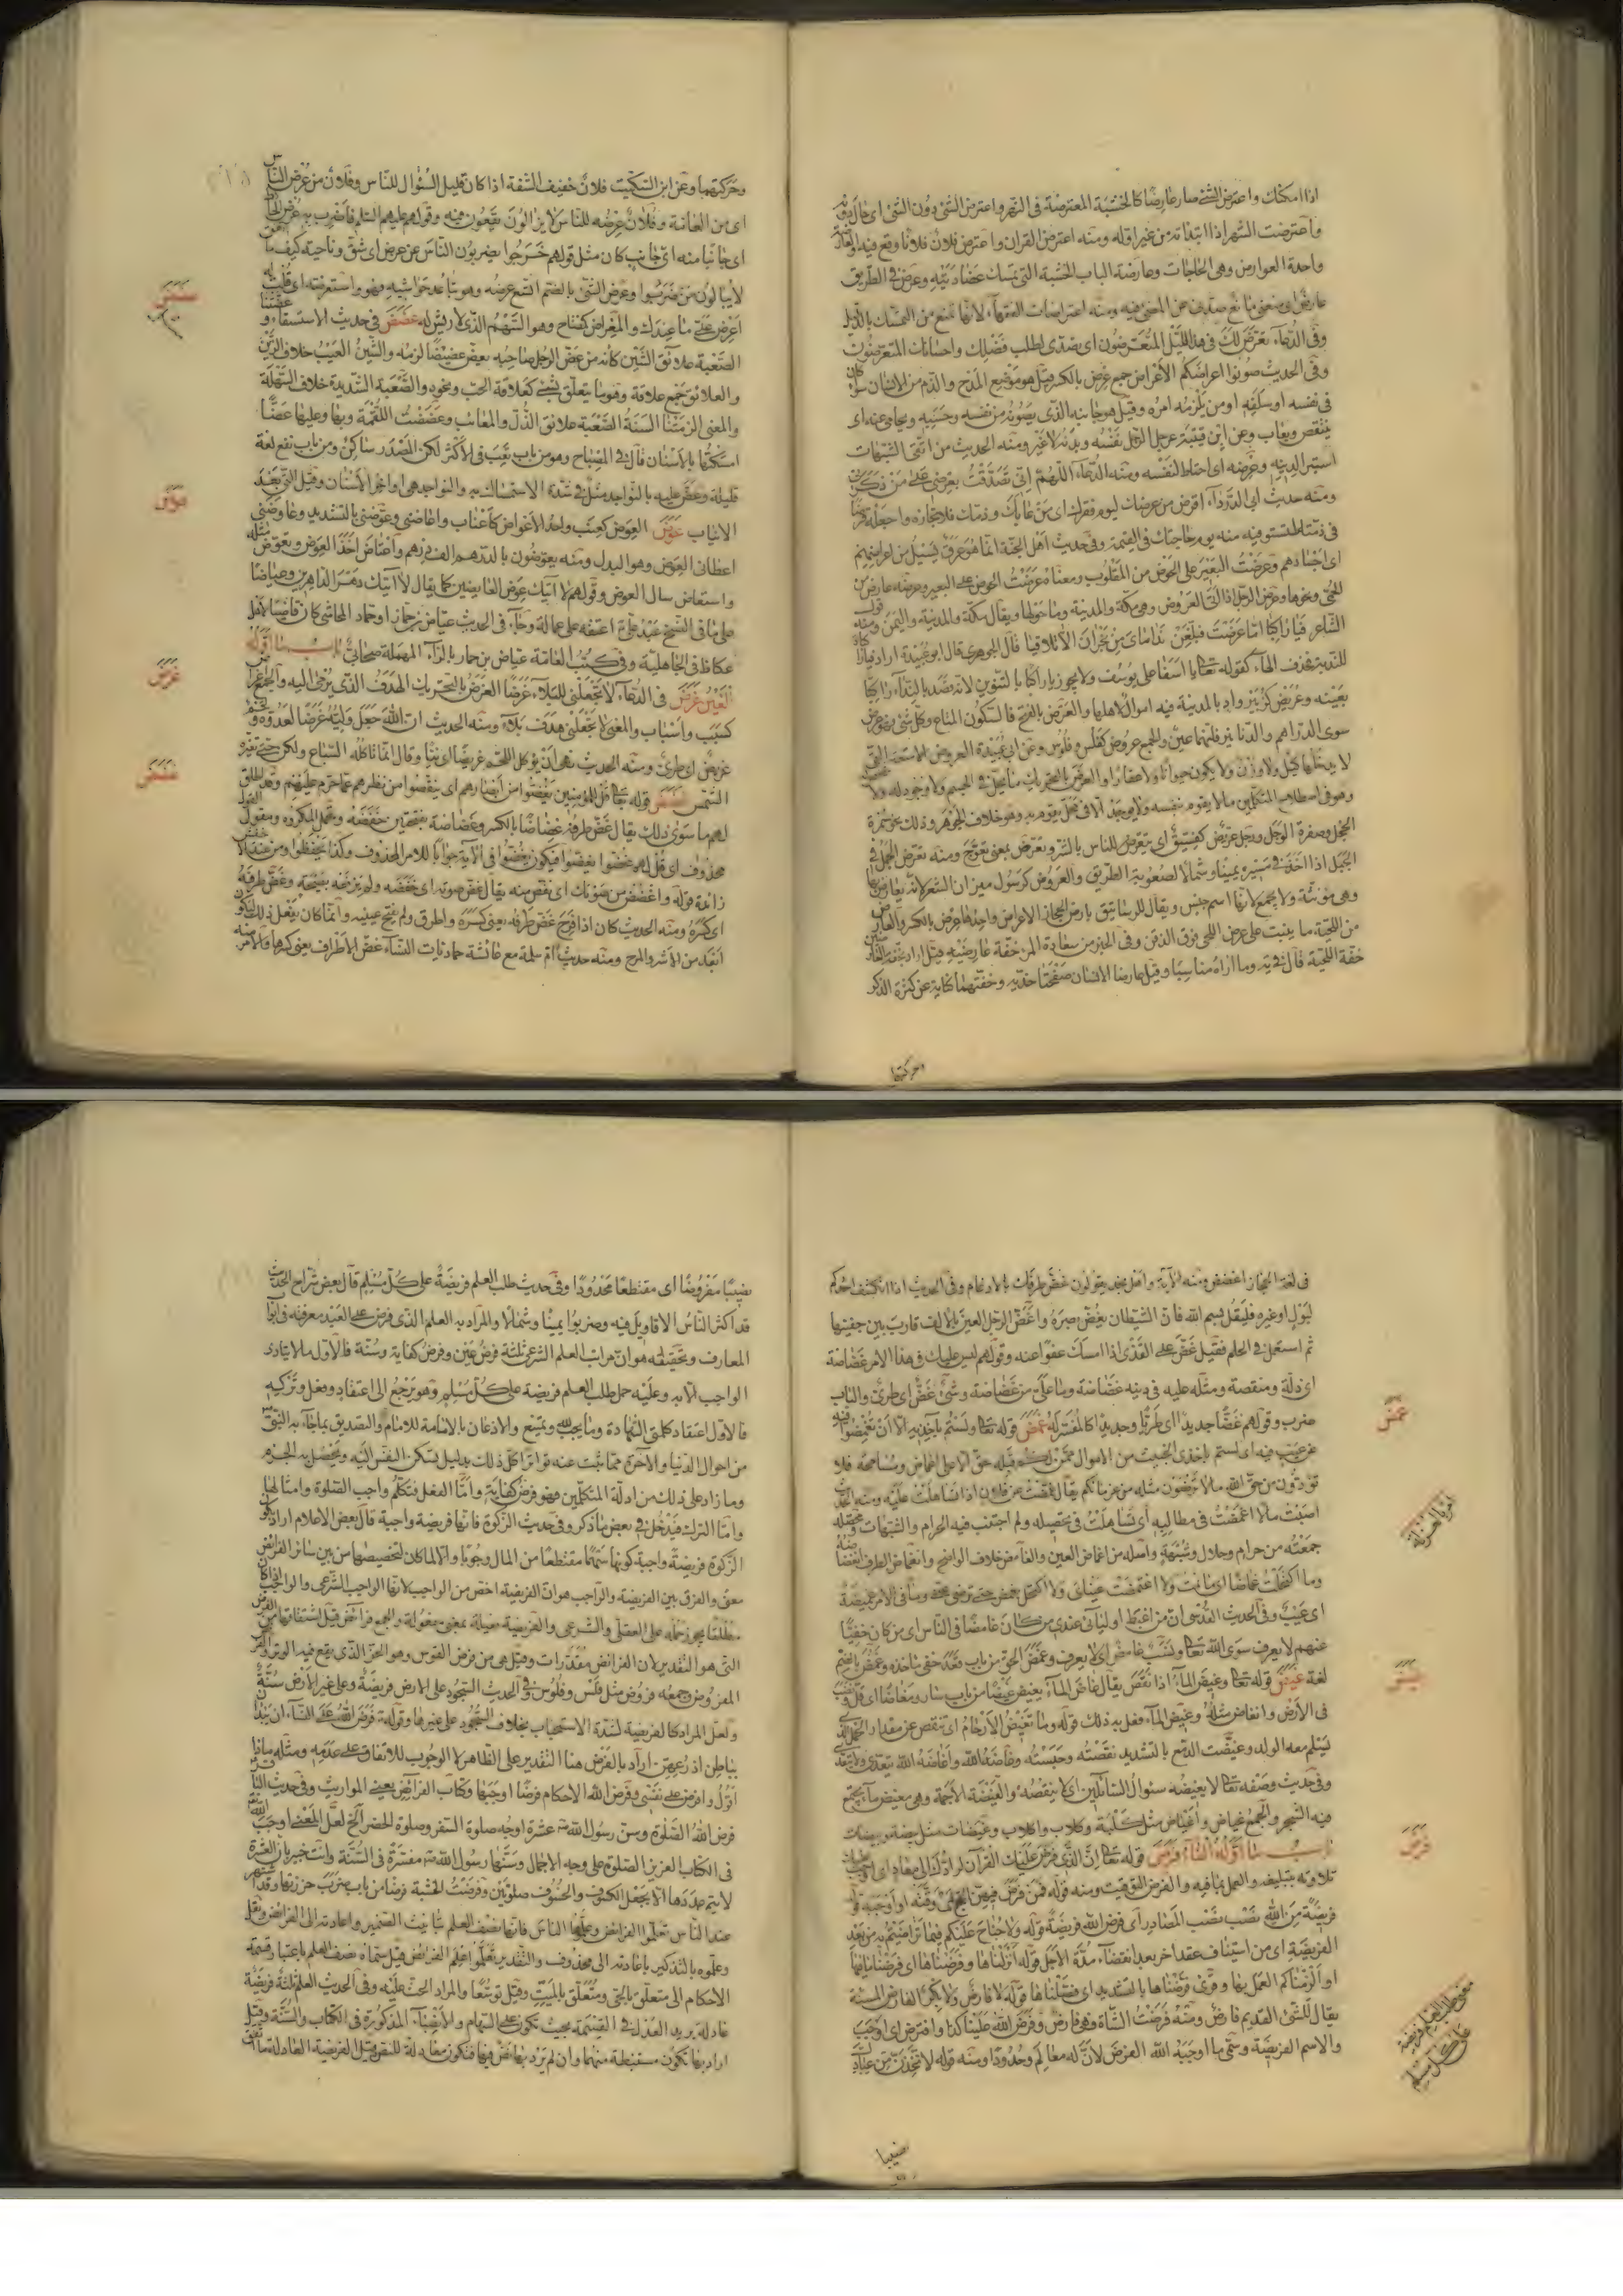 اذا امكنك واعترض الشئ صار عارضا كالخشبة المعترضة فى النهر واعترض الشئ دون الشئ اى حال دونه
واعترضت الشهر اذا ابتدأته من غير اوله ومنه اعترض القران واعترض فلان فلانا وقع فيه
واحدة العوارض وهى الحاجات وعارضة الباب الخشبة التى تمسك عضادتيه وعرض فى الطريق
عارض اى منعنى مانع صدنى عن المضى فيه ومنه اعتراضات الفقهاء لانها تمنع من التمسك بالدليل
وفى الدعاء تعرض لك فى هذا الليل المتعرضون اى تصدى لطلب فضلك واحسانك المتعرضون
وفى الحديث صونوا اعراضكم الأعراض جمع عرض بالكسر قيل هو موضع المدح والذم من الانسان سواء كان
فى نفسه او سلفه او من يلزمه امره وقيل هو جانبه الذى يصونه من نفسه وحسبه ويحامى عنه اى
ينتقص ويعاب وعن ابن قتيبة عرض الرجل نفسه وبدنه لا غير ومنه الحديث من اتقى الشبهات
استبرأ لدينه وعرضه اى احتاط لنفسه ومنه الدعاء اللهم انى تصدقت بعرضى على من ذكرنى
ومنه حديث ابى الدرداء اقرض من عرضك ليوم فقرك اى من عابك وذمك فلا تجازه واجعله قرضا
فى ذمته لتستوفيه منه يوم حاجتك فى القيمة وفى حديث اهل الجنة انما هو عرق يسيل من اعراضهم
اى اجسادهم وعرضت البعير على الحوض من المقلوب ومعناه عرضت الحوض على البعير
وعرض الرجل اذا اتى العروض وهى مكة والمدينة وما حولها ويقال مكة والمدينة واليمن ومنه قول
الشاعر فيا راكبا اما عرضت فبلغن نداماى من نجران الا تلاقيا قال الجوهرى قال ابو عبيدة اراد فيا راكباه
للندبة فحذف الهاء كقوله تعالى يا اسفا على يوسف ولا يجوز يا راكبا بالتنوين لانه قصد بالنداء راكبا
بعينه وعريض كزبير واد بالمدينة فيه اموال لاهلها والعرض بالفتح فالسكون المتاع وكل شئ فهو عرض
سوى الدراهم والدنانير فانهما عين والجمع عروض كفلس وفلوس وعن ابى عبيدة العروض الامتعة التى
لا يدخلها كيل ولا وزن ولا يكون حيوانا ولا عقارا والعرض بالتحريك ما يحل فى الجسم ولا وجود له
وهو فى اصطلاح المتكلمين ما لا يقوم بنفسه ولا يوجد الا فى محل يقوم به وهو خلاف الجوهر وذلك نحو حمرة
الخجل وصفرة الوجل ورجل عريض كفسيق اى يتعرض للناس بالشر وتعرض بمعنى تعوج ومنه تعرض الجمل فى
الجبل اذا اخذ فى مسيره يمينا وشمالا لصعوبة الطريق والعروض كرسول ميزان الشعر لانه يعارض بها
وهى مؤنثة ولا تجمع لانها اسم جنس ويقال للرساتيق بارض الحجاز الاعراض واحدها عرض بالكسر والعارض
من اللحية ما ينبت على عرض اللحى فوق الذقن وفى الخبر من سعادة المرء خفة عارضيه قيل اراد بخفة العارضين
خفة اللحية قال فى يه وما اراه مناسبا وقيل عارضا الانسان صفحتا خديه وخفتهما كناية عن كثرة الذكر
وحركتها
وحركتهما وعن ابن السكيت فلان خفيف الشفة اذا كان قليل السؤال للناس وفلان من عرض الناس
اى من العامة وفلان عرضه للناس لا يزالون يقعون فيه وقولهم
اى جانبا منه اى جانب كان مثل قولهم خرجوا يضربون الناس عن عرض اى شق وناحية كيف ما
لا يبالون من ضربوا وعرض الشئ بالضم اتسع عرضه وهو تباعد حواشيه فهو واستعرضته اى قلت له
اعرض على ما عندك والمعراض كمفتاح وهو السهم الذى لا ريش له عضض فى حديث الاستسقاء وعضتنا
الصعبة علائق الشين كانه من عض الرجل صاحبه يعض عضيضا لزمه والشين العيب خلاف الزين
والعلائق جمع علاقة وهو ما يتعلق بشئ كعلاقة الحب ونحوه والصعبة الشديدة خلاف السهلة
والمعنى الزمتنا السنة الصعبة علائق الذل والمعائب وعضضت اللقمة وبها وعليها عضا
امسكتها بالاسنان قال فى المصباح وهو من باب تعب فى الاكثر لكن المصدر ساكن ومن باب نفع لغة
قليلة وعض عليه بالنواجذ مثل فى شدة الاستمساك به والنواجذ هى اواخر الأسنان وقيل التى بعد
الانياب عوض العوض كعنب واحد الأعواض كأعناب واعاضنى وعوضنى بالتشديد وعاوضنى
اعطانى العوض وهو البدل ومنه يعوضون بالدرهم الف درهم واعتاض اخذ العوض وتعوض مثله
واستعاض سال العوض وقولهم لا آتيك عوض العايضين كما يقال لا آتيك دهر الداهرين وعياضا
على ما فى النسخ عبد على اعتقه على عمالة وجاء فى الحديث عياض بن حماد المجاشى كان قاضيا لاهل
عكاظ فى الجاهلية وفى كتب العامة عياض بن حمار بالراء المهملة صحابى باب ما اوله
الغين غرض فى الدعاء لا تجعلنى للبلاء غرضا الغرض بالتحريك الهدف الذى يرمى اليه والجمع اغراض
كسبب واسباب والمعنى لا تجعلنى هدف بلاء ومنه الحديث ان الله جعل وليه غرضا لعدوه
غريض اى طرى ومنه الحديث نهى ان يؤكل اللحم غريضا اى نيا وقال انما تاكله السباع ولكن حتى تغيره
الشمس غضض قوله تعالى قل للمؤمنين يغضوا من أبصارهم اى ينقصوا من نظرهم عما حرم عليهم
لهم ما سوى ذلك يقال غض طرفه غضاضا بالكسر وغضاضة بفتحتين خفضه وتحمل المكروه ومقول القول
محذوف اى قل لهم غضوا يغضوا فيكون يغضوا فى الآية جوابا للامر المحذوف وكذا يحفظوا
زائدة قوله واغضض من صوتك اى نقص منه يقال غض صوته اى خفضه ولم يرفعه بصيحة وغض طرفه
اى كسره ومنه الحديث كان اذا فرح غض طرفه يعنى كسره واطرق ولم يفتح عينيه وانما كان يفعل ذلك ليكون
ابعد من الأشر والمرح ومنه حديث ام سلمة مع عائشة حماديات النساء غض الأطراف
عضض
عوض
غرض
غضض
فى لغة الحجاز اغضض ومنه الآية واهل نجد يقولون غض طرفك بالادغام وفى الحديث اذا انكشف احدكم
لبول او غيره فليقل بسم الله فان الشيطان يغض بصره واغض الرجل العين بالالف قارب بين جفنيها
ثم استعمل فى الحلم فقيل غض على القذى اذا امسك عفوا عنه وقولهم ليس عليك فى هذا الامر غضاضة
اى ذلة ومنقصة ومثله عليه فى دينه غضاضة وما على من غضاضة وشئ غض اى طرى والباب
ضرب وقولهم غضا جديدا اى طريا وجديدا كالمفسر له غمض قوله تعالى ولستم بآخذيه الا ان تغمضوا فيه
عن عيب فيه اى لستم باخذى الخبيث من الاموال ممن لكم قبله حق الا على اغماض ومسامحة فلا
تودون من حق الله ما لا ترضون مثله من غرمائكم يقال غمضت عن فلان اذا تساهلت عليه ومنه الحديث
اصبت مالا اغمضت فى مطالبه اى تساهلت فى تحصيله ولم اجتنب فيه الحرام والشبهات
جمعته من حرام وحلال وشبهة واصله من اغماض العين والغامض خلاف الواضح وانغماض الطرف انغضاضه
وما اكتحلت غماضا اى ما نمت ولا اغتمضت عيناى ولا اكتحل بغمض حتى ترضى وما فى الامر غميضة
اى عيب وفى الحديث القدسى ان من اغبط اوليائى عندى من كان غامضا فى الناس اى من كان خفيا
عنهم لا يعرف سوى الله تعالى ونسب غامض اى لا يعرف وغمض الحق من باب قعد خفى ماخذه وغمض بالضم
لغة غيض قوله تعالى وغيض الماء اذا نقص يقال غاض الماء يغيض غيضا من باب سار ومغاضا اى قل ونضب
فى الأرض وانغاض مثله وغيض الماء فعل به ذلك قوله وما تغيض الأرحام اى تنقص عن مقدار الحمل الذى
يسلم معه الولد وغيضت الدمع بالتشديد نقصته وحبسته وغاضه الله واغاضه الله يتعدى ولا يتعدى
وفى حديث وصفه تعالى لا يغيضه سئوال السائلين اى لا ينقصه والغيضة الاجمة وهى مغيض ماء يجتمع
فيه الشجر والجمع غياض واغياض مثل كلبة وكلاب واكلاب وغيضات مثل بيضة وبيضات
باب ما اوله الفاء فرض قوله تعالى ان الذى فرض عليك القرآن لرادك الى معاد اى اوجب عليك
تلاوته وتبليغه والعمل بما فيه والفرض التوقيت ومنه قوله فمن فرض فيهن الحج اى وقته او اوجبه قوله
فريضة من الله نصب نصب المصادر اى فرض الله فريضة قوله ولا جناح عليكم فيما تراضيتم به من بعد
الفريضة اى من استيناف عقد اخر بعد انقضاء مدة الاجل قوله انزلناها وفرضناها اى فرضنا ما فيها
او الزمناكم العمل بها وقرئ فرضناها بالتشديد اى فصلناها قوله لا فارض ولا بكر الفارض المسنة
يقال للشئ القديم فارض ومنه فرضت الشاة فهى فارض وفرض الله علينا كذا وافترض اى اوجب
والاسم الفريضة وسمى ما اوجبه الله الفرض لان له معالم وحدودا ومنه قوله لاتخذن من عبادك
نصيبا
غمض
غيض
فرض
معنى طلب العلم فريضة
على كل مسلم
نصيبا مفروضا اى مقتطعا محدودا وفى حديث طلب العلم فريضة على كل مسلم قال بعض شراح الحديث
قد اكثر الناس الاقاويل فيه وضربوا يمينا وشمالا والمراد به العلم الذى فرض على العبد معرفته فى ابواب
المعارف وتحقيقه هو ان مراتب العلم الشرعى ثلثة فرض عين وفرض كفاية وسنة فالاول ما لا يتادى
الواجب الا به وعليه حمل طلب العلم فريضة على كل مسلم وهو يرجع الى اعتقاد وفعل وترك
فالاول اعتقاد كلمتى الشهادة وما يجب لله ويمتنع والاذعان بالامامة للامام والتصديق بما جاء به النبى ص
من احوال الدنيا والآخرة مما ثبت عنه تواترا كل ذلك بدليل تسكن النفس اليه ويحصل به الجزم
وما زاد على ذلك من ادلة المتكلمين فهو فرض كفاية واما الفعل فتعلم واجب الصلوة وامثالها
واما الترك فيدخل فى بعض ما ذكر وفى حديث الزكوة فانها فريضة واجبة قال بعض الاعلام اراد بكون
الزكوة فريضة واجبة كونها سهما مقتطعا من المال وجوبا والا لما كان لتخصيصها من بين سائر الفرائض
معنى والفرق بين الفريضة والواجب هو ان الفريضة اخص من الواجب لانها الواجب الشرعى والواجب اذا كان
مطلقا يجوز حمله على العقلى والشرعى والفريضة فعيلة بمعنى مفعولة والجمع فرائض قيل اشتقاقها من الفرض
الذى هو التقدير لان الفرائض مقدرات وقيل هى من فرض القوس وهو الحز الذى يقع فيه الوتر
المفروض وجمعه فروض مثل فلس وفلوس وفى الحديث السجود على الارض فريضة وعلى غير الارض سنة
ولعل المراد كالفريضة لشدة الاستحباب بخلاف السجود على غيرها وقوله ع فرض الله على النساء ان يبدأن
بباطن اذرعهن اراد بالفرض هنا التقدير على الظاهر لا الوجوب للاتفاق على عدمه ومثله ماذا
اقول وافرض على نفسى وفرض الله الاحكام فرضا اوجبها وكتاب الفرائض يعنى المواريث وفى حديث
فرض الله الصلوة وسن رسول الله ص عشرة اوجه صلوة السفر وصلوة الحضر الخ لعل المعنى اوجب الله
فى الكتاب العزيز الصلوة على وجه الاجمال وسنها رسول الله ص مفسرة فى السنة وانت خبير بان العشرة
لا يتم عددها الا بجعل الكسوف والخسوف صلوتين وفرضت الخشبة فرضا من باب ضرب حززتها وقد اشتهر
عند الناس تعلموا الفرائض وعلموها الناس فانها نصف العلم بتأنيث الضمير واعادته الى الفرائض ونقل
وعلموه بالتذكير باعادته الى محذوف والتقدير تعلموا علم الفرائض قيل سماه نصف العلم باعتبار قسمة
الاحكام الى متعلق بالحى ومتعلق بالميت وقيل توسعا والمراد الحث عليه وفى الحديث العلم ثلثة فريضة
عادلة يريد العدل فى القسمة بحيث تكون على السهام والأنصباء المذكورة فى الكتاب والسنة وقيل
اراد بها تكون مستنبطة منهما وان لم يرد بها نص فيهما فتكون معادلة للنص وقيل الفريضة العادلة ما اتفق